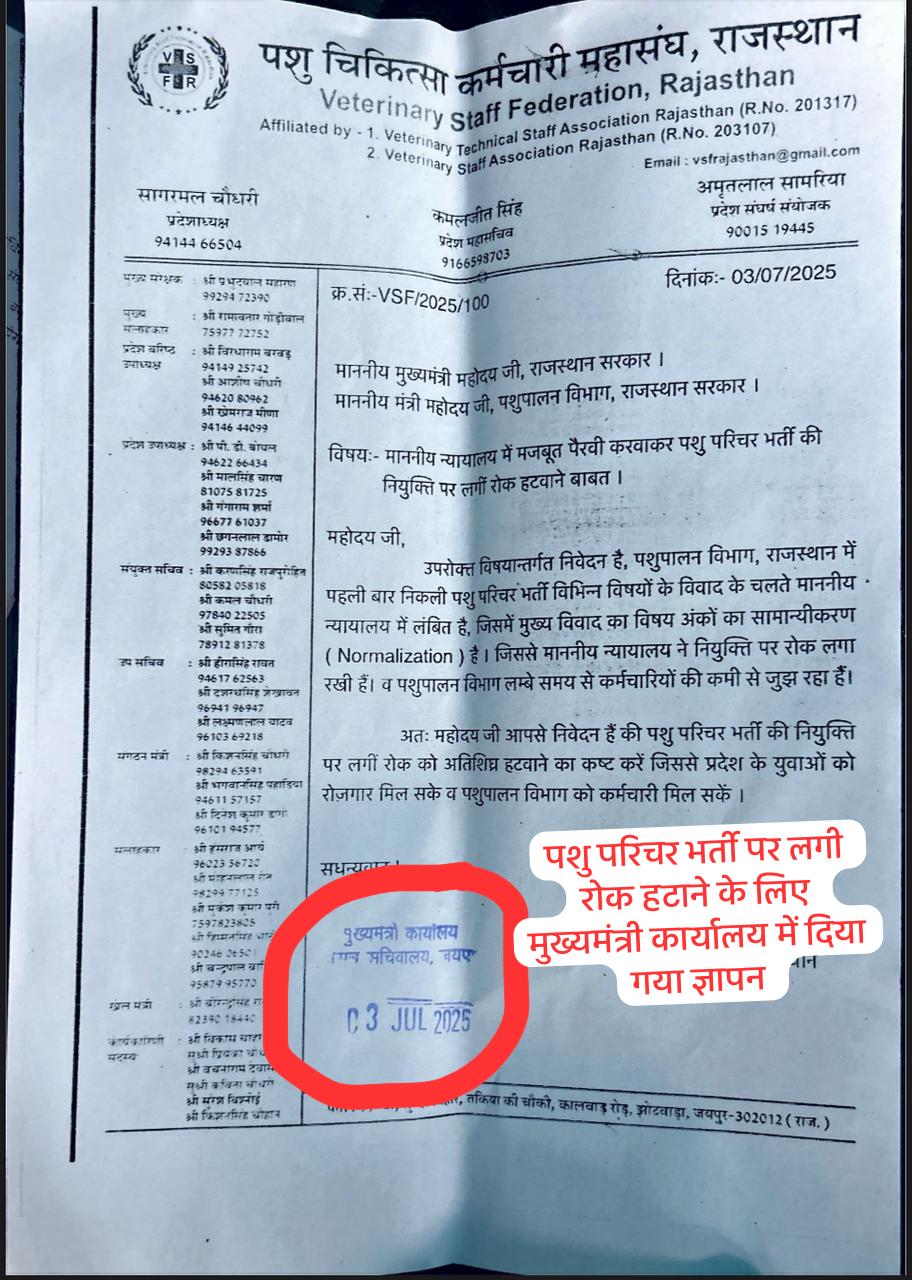 VSFR
पशु चिकित्सा कर्मचारी महासंघ, राजस्थान
Veterinary Staff Federation, Rajasthan
Affiliated by - 1. Veterinary Technical Staff Association Rajasthan (R.No. 201317)
2. Veterinary Staff Association Rajasthan (R.No. 203107)
Email : vsfrajasthan@gmail.com
सागरमल चौधरी
प्रदेशाध्यक्ष
94144 66504
कमलजीत सिंह
प्रदेश महासचिव
9166598703
अमृतलाल सामरिया
प्रदेश संघर्ष संयोजक
90015 19445
मुख्य संरक्षक : श्री प्रभुदयाल
99294 72390
मुख्य : श्री रामावतार गोड़ीवाल
सलाहकार 75977 72752
प्रदेश वरिष्ठ : श्री बरवड़
उपाध्यक्ष 94149 25742
श्री आशीष चौधरी
94620 80962
श्री खेमराज मीणा
94146 44099
प्रदेश उपाध्यक्ष : श्री पी. डी. बोयल
94622 66434
श्री मालसिंह चारण
81075 81725
श्री गंगाराम शर्मा
96677 61037
श्री छगनलाल डामोर
99293 87866
संयुक्त सचिव : श्री करणसिंह राजपुरोहित
80582 05818
श्री कमल चौधरी
97840 22505
श्री सुमित गौरा
78912 81378
उप सचिव : श्री हीरासिंह रावत
94617 62563
श्री दशरथसिंह शेखावत
96941 96947
श्री लक्ष्मणलाल यादव
96103 69218
संगठन मंत्री : श्री किशनसिंह चौधरी
98294 63591
श्री भगवानसिंह पहाड़िया
94611 57157
श्री दिनेश कुमार डांगी
96101 94577
सलाहकार : श्री हंसराज आर्य
96023 56720
श्री मोहनलाल
98299 77125
श्री मुकेश कुमार
7597823805
श्री
श्री चन्द्रपाल
95879 95770
खेल मंत्री : श्री
82390 18440
कार्यकारिणी : श्री विकास
सदस्य सुश्री प्रियंका
श्री
सुश्री कविता चौधरी
श्री सुरेश विश्नोई
श्री किशनसिंह चौहान
क्र.सं:-VSF/2025/100
दिनांकः- 03/07/2025
माननीय मुख्यमंत्री महोदय जी, राजस्थान सरकार ।
माननीय मंत्री महोदय जी, पशुपालन विभाग, राजस्थान सरकार ।
विषयः- माननीय न्यायालय में मजबूत पैरवी करवाकर पशु परिचर भर्ती की
नियुक्ति पर लगीं रोक हटवाने बाबत ।
महोदय जी,
उपरोक्त विषयान्तर्गत निवेदन है, पशुपालन विभाग, राजस्थान में
पहली बार निकली पशु परिचर भर्ती विभिन्न विषयों के विवाद के चलते माननीय
न्यायालय में लंबित है, जिसमें मुख्य विवाद का विषय अंकों का सामान्यीकरण
( Normalization ) है । जिससे माननीय न्यायालय ने नियुक्ति पर रोक लगा
रखी हैं। व पशुपालन विभाग लम्बे समय सें कर्मचारियों की कमी से जुझ रहा हैं।
अतः महोदय जी आपसे निवेदन हैं की पशु परिचर भर्ती की नियुक्ति
पर लगीं रोक को अतिशिघ्र हटवाने का कष्ट करें जिससे प्रदेश के युवाओं को
रोज़गार मिल सके व पशुपालन विभाग को कर्मचारी मिल सकें ।
सधन्यवाद !
मुख्यमंत्री कार्यालय
सचिवालय,
03 JUL 2025
पशु परिचर भर्ती पर लगी
रोक हटाने के लिए
मुख्यमंत्री कार्यालय में दिया
गया ज्ञापन
तकिया की चौकी, कालवाड़ रोड़, झोटवाड़ा, जयपुर-302012 ( राज. )